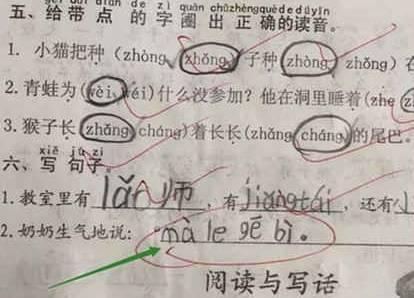 gěi dài diǎn de zì quān chū zhèng què de dú yīn
五、给带点的字圈出正确的读音。
1. 小猫把种(zhòng zhǒng)子种(zhòng zhǒng)在
2. 青蛙为(wèi wéi)什么没参加?他在洞里睡着(zhe
3. 猴子长(zhǎng cháng)着长长(zhǎng cháng)的尾巴。
xiě jù zi
六、写句子。
1. 教室里有lǎo师,有jiǎngtái,还有
2. 奶奶生气地说:mà le gē bì。
阅读与写话